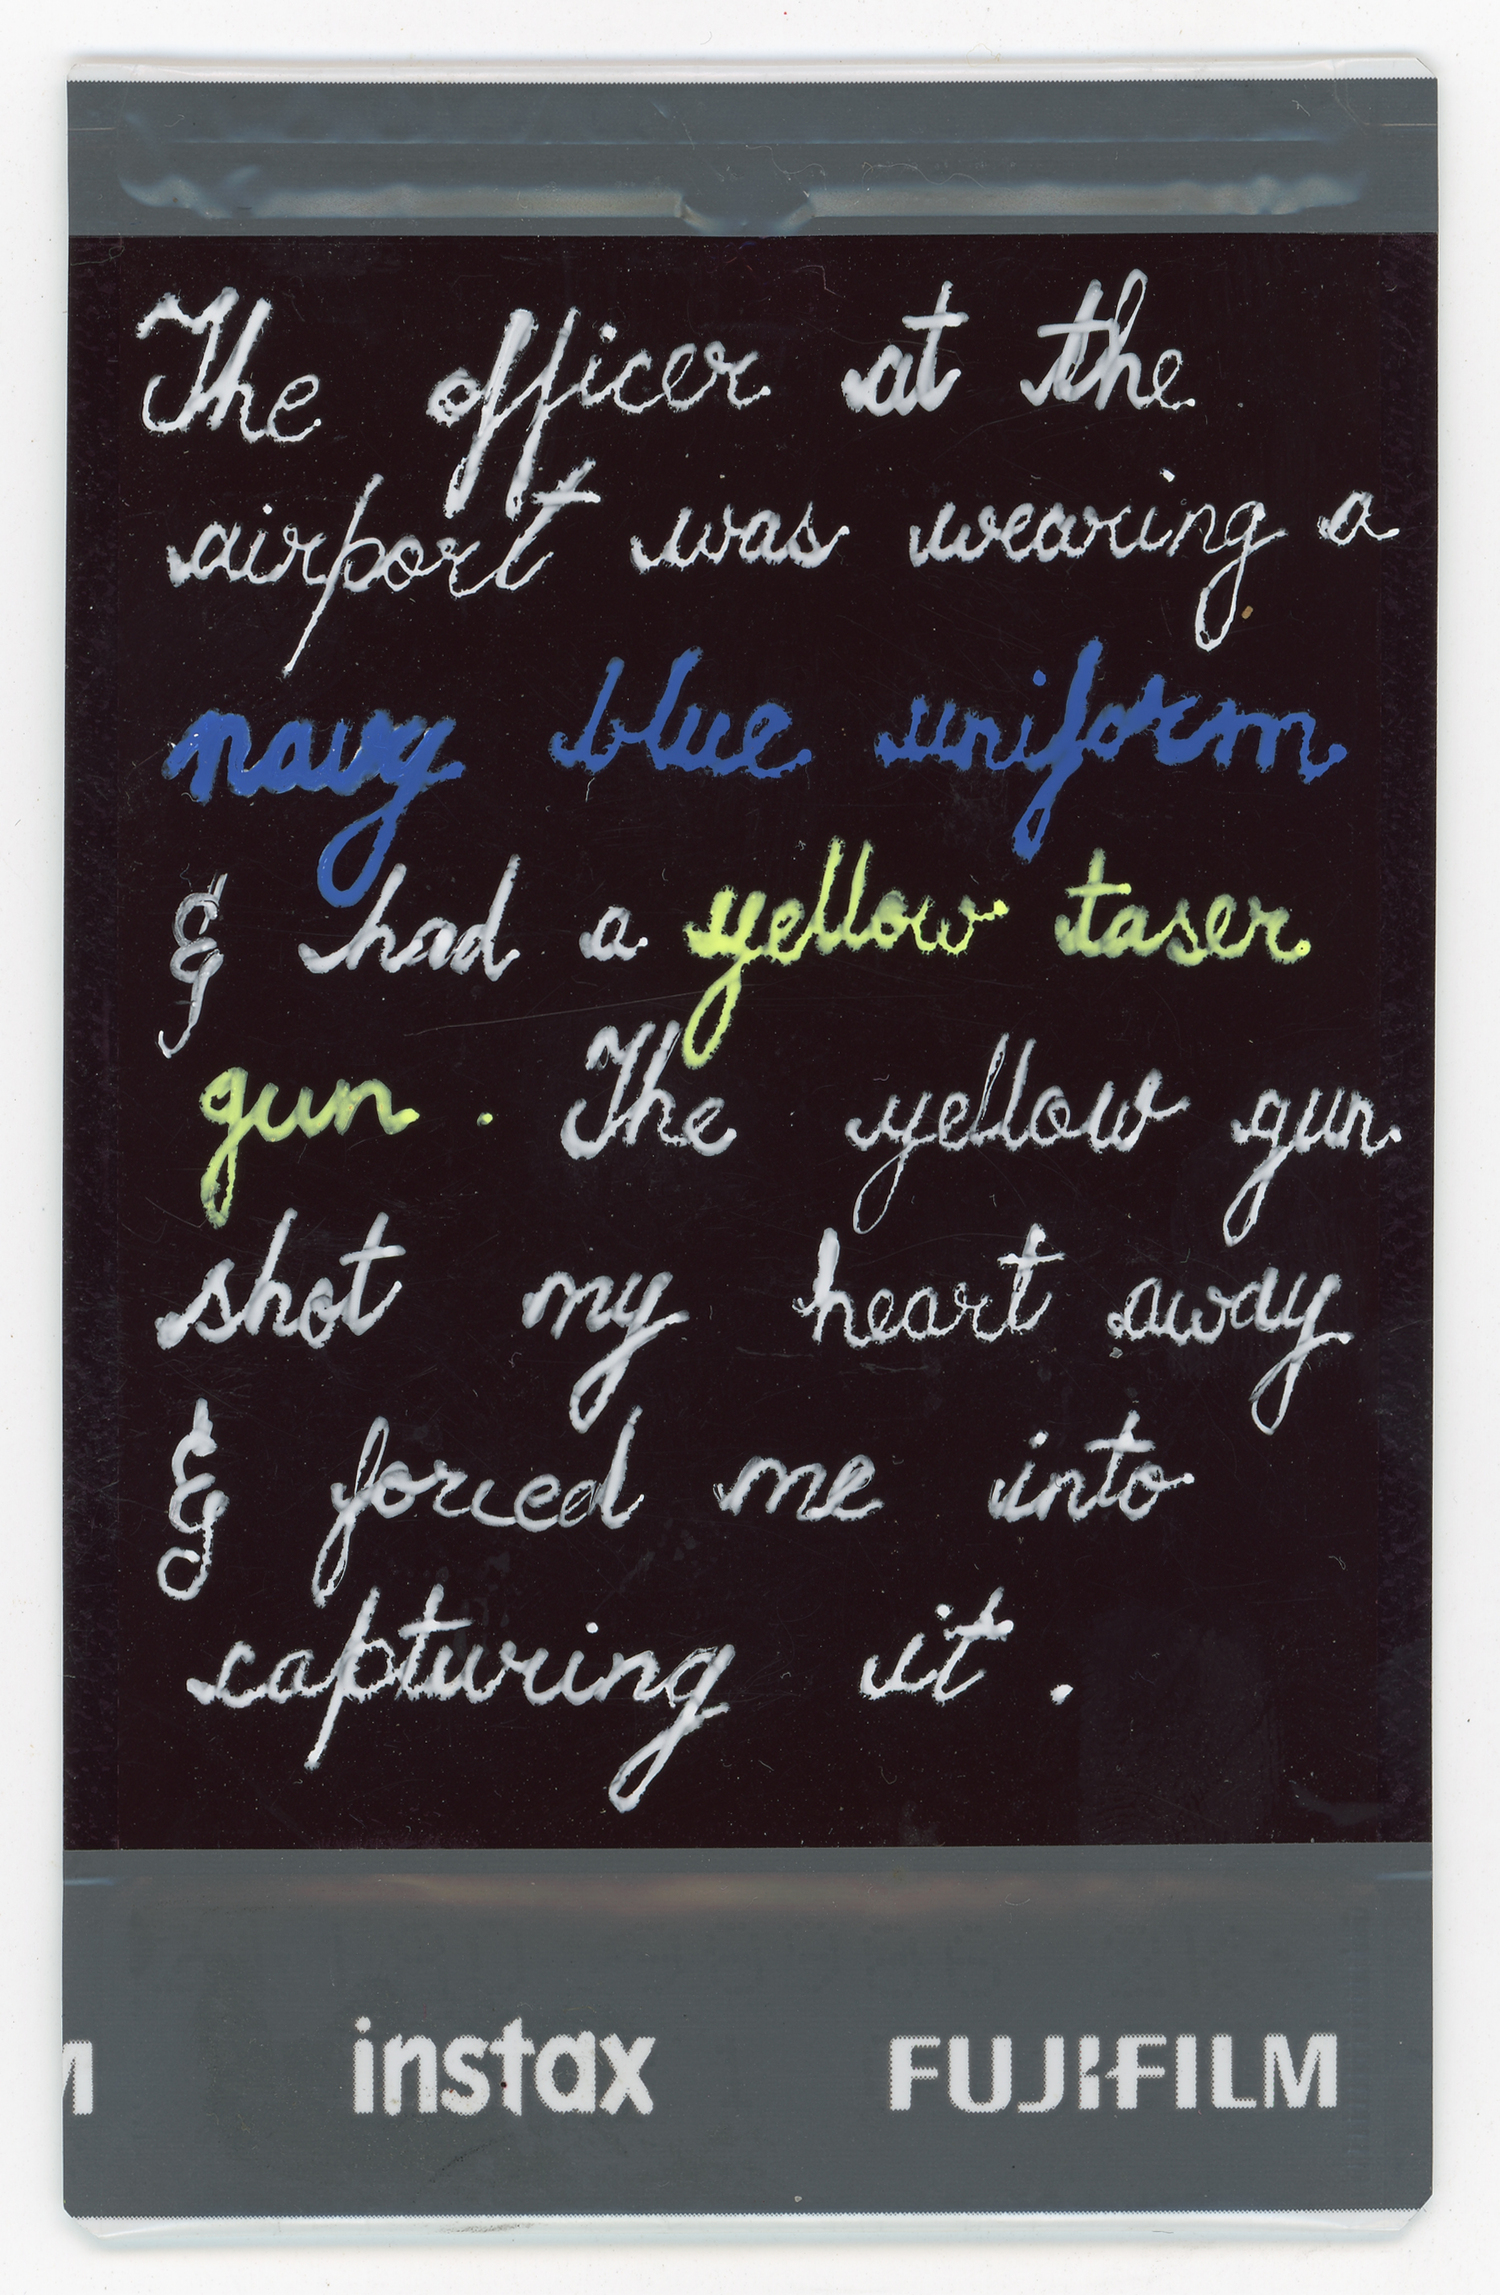 The officer at the
airport was wearing a
navy blue uniform
& had a yellow taser
gun. The yellow gun
shot my heart away
& forced me into
capturing it.
M instax FUJIFILM